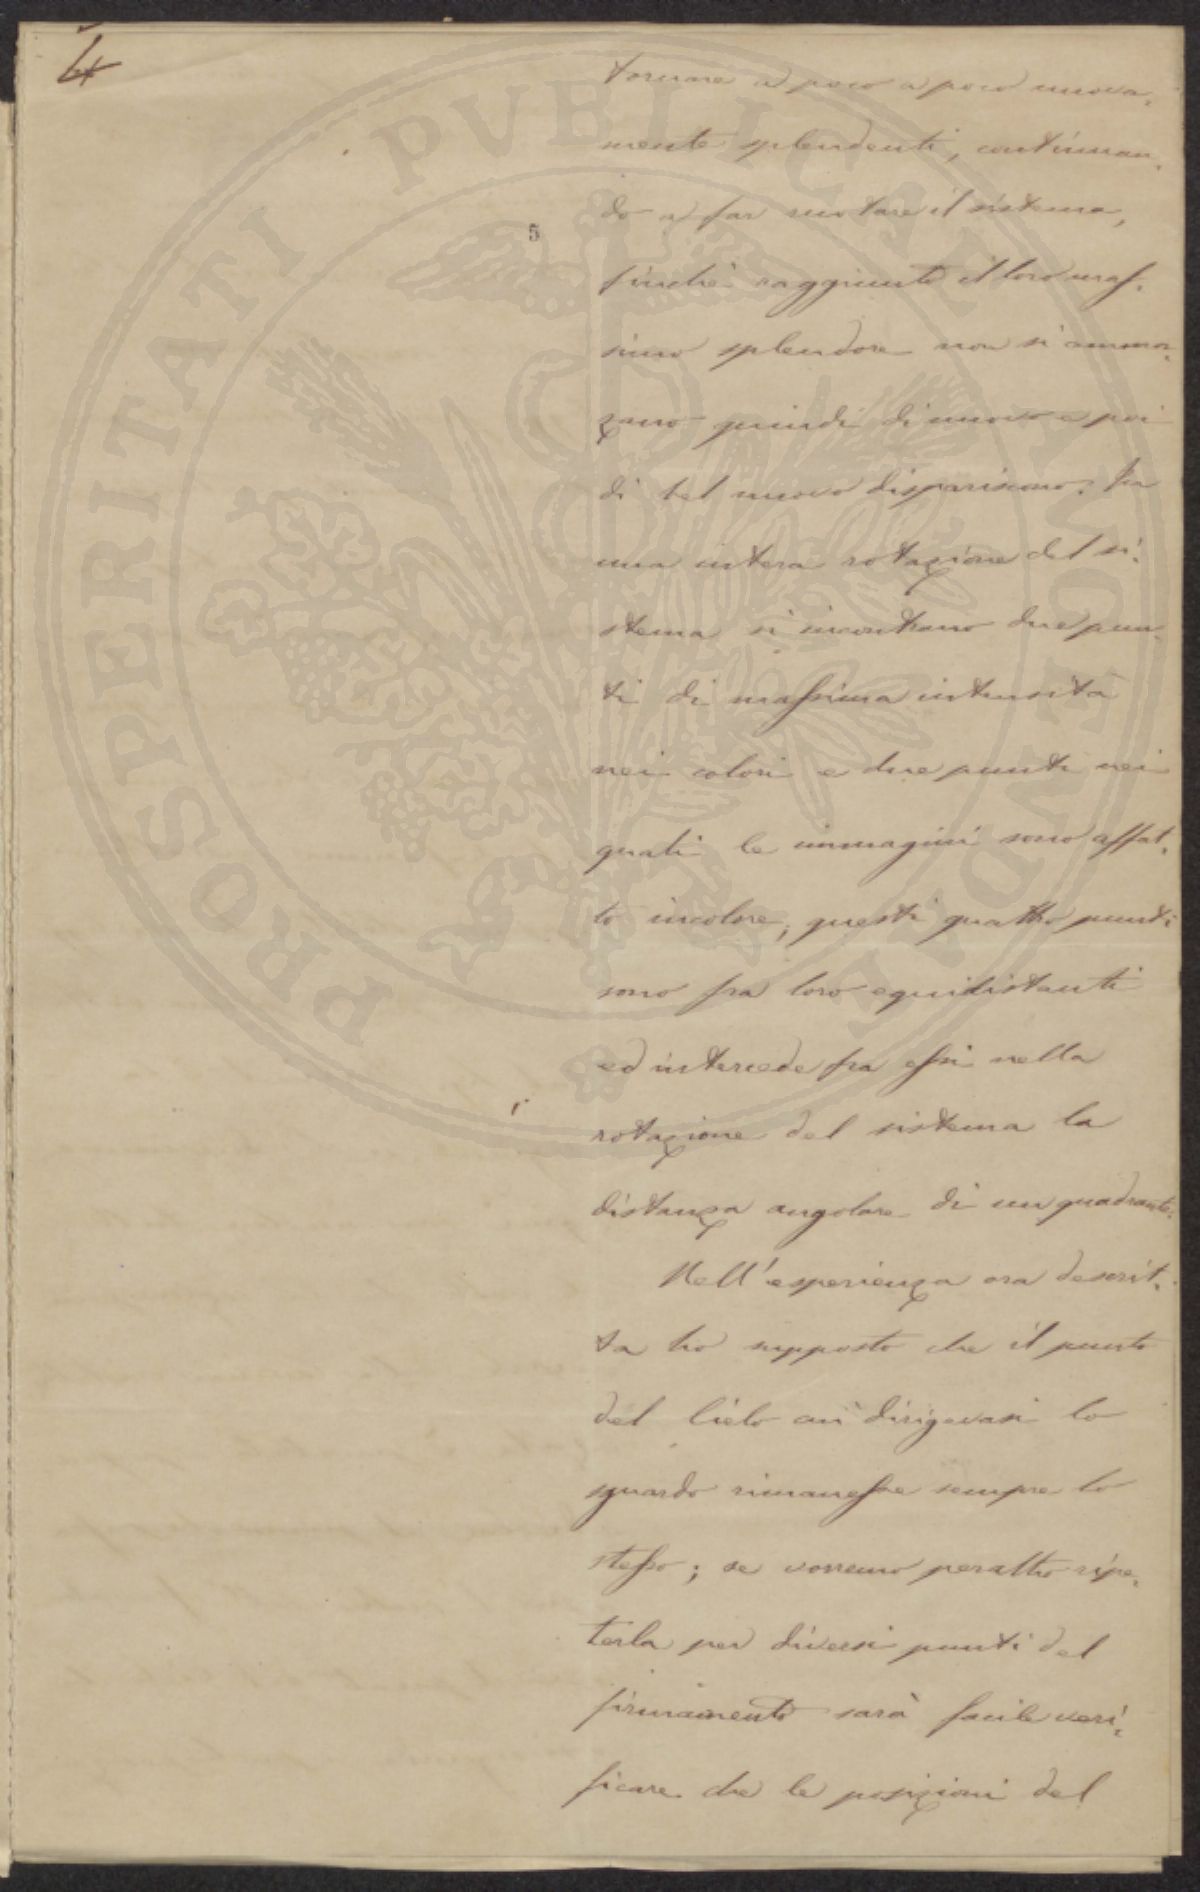 4
tornare a poco a poco nuova-
mente splendenti, continuan-
do a far ruotare il sistema,
5
finchè raggiunto il loro mas-
simo splendore non si ammor-
zano quindi di nuovo e poi
di bel nuovo disparisono. In
una intera rotazione del si-
stema si incontrano due pun-
ti di massima intensità
nei colori e due punti nei
quali le immagini sono affat-
to incolore; questi quattro punti
sono fra loro equidistanti
ed intercede fra essi nella
rotazione del sistema la
distanza angolare di un quadrante.
Nell'esperienza ora descrit-
ta ho supposto che il punto
del Cielo cui dirigevasi lo
sguardo rimanesse sempre lo
stesso; se vorremo peraltro ripe-
terla per diversi punti del
firmamento sarà facile veri-
ficare che le posizioni del
PROSPERITATI PVBLICAE AVGENDAE